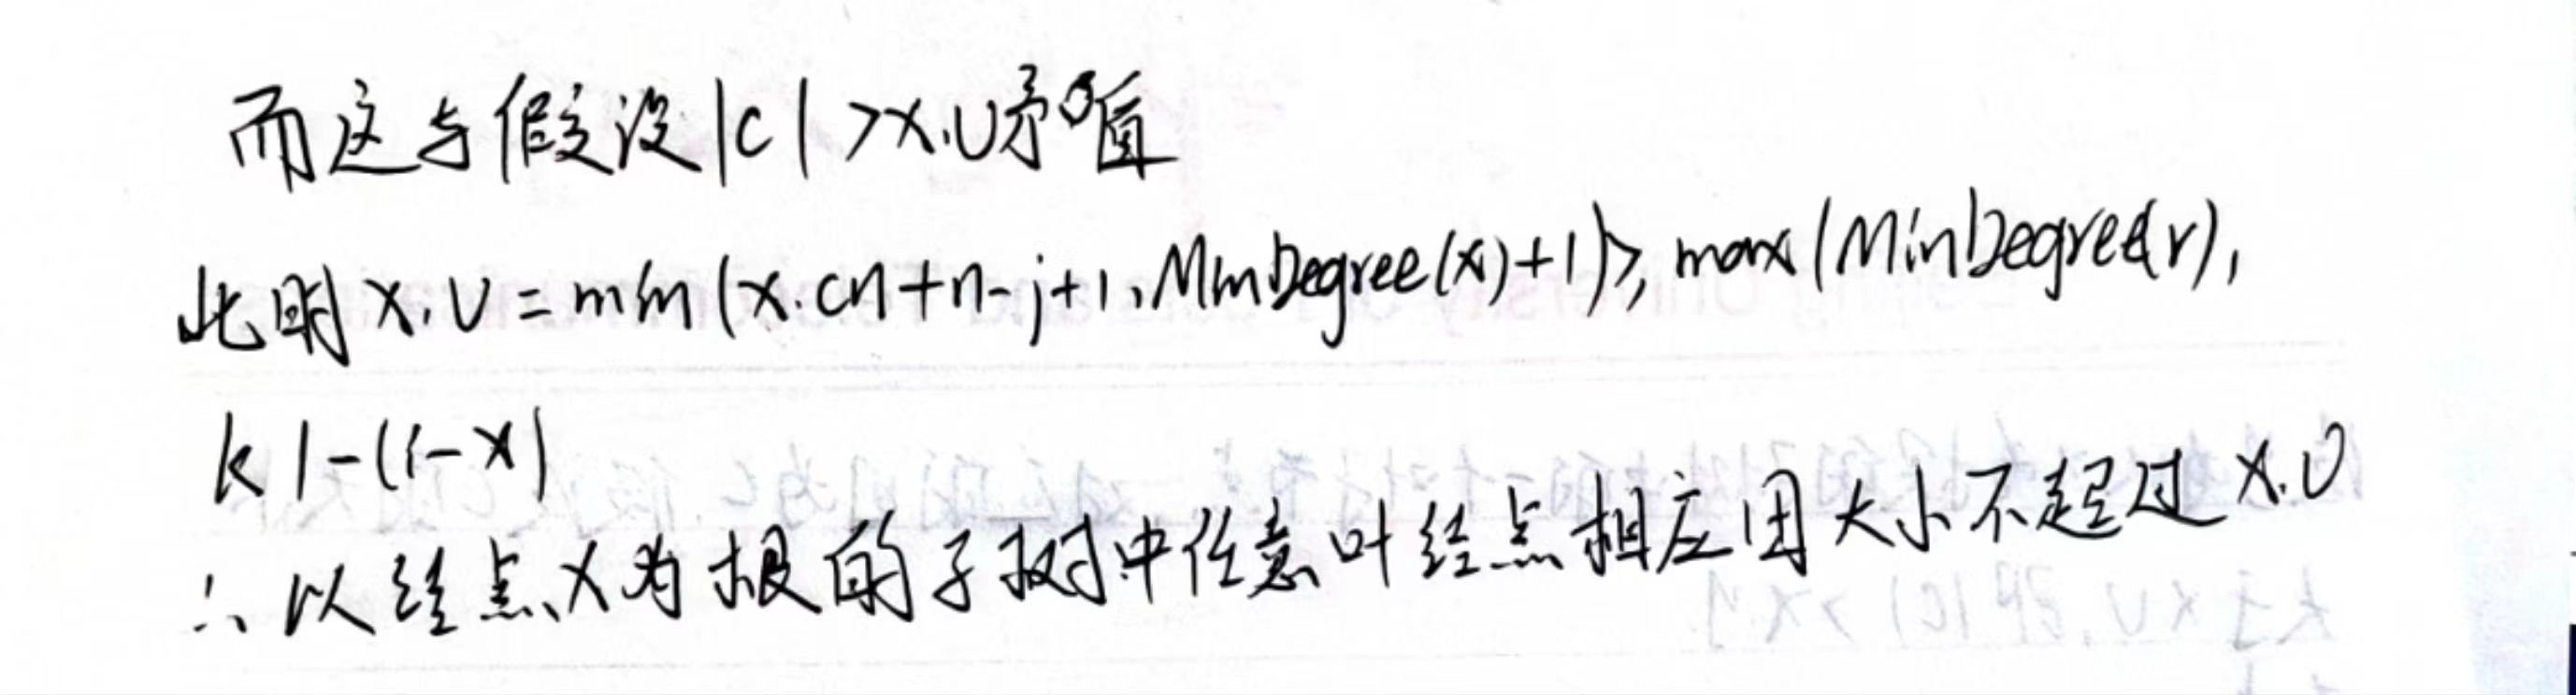 而这与假设|C|>X.U矛盾
此时X.U=min(X.cn+n-j+1,MinDegree(x)+1)≥max(MinDegree(r),
k)-(i-x)
∴以结点X为根的子树中任意叶结点相应团大小不超过X.U